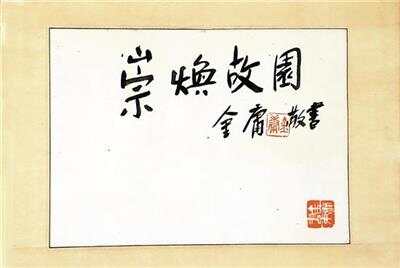 崇焕故園
金庸敬書